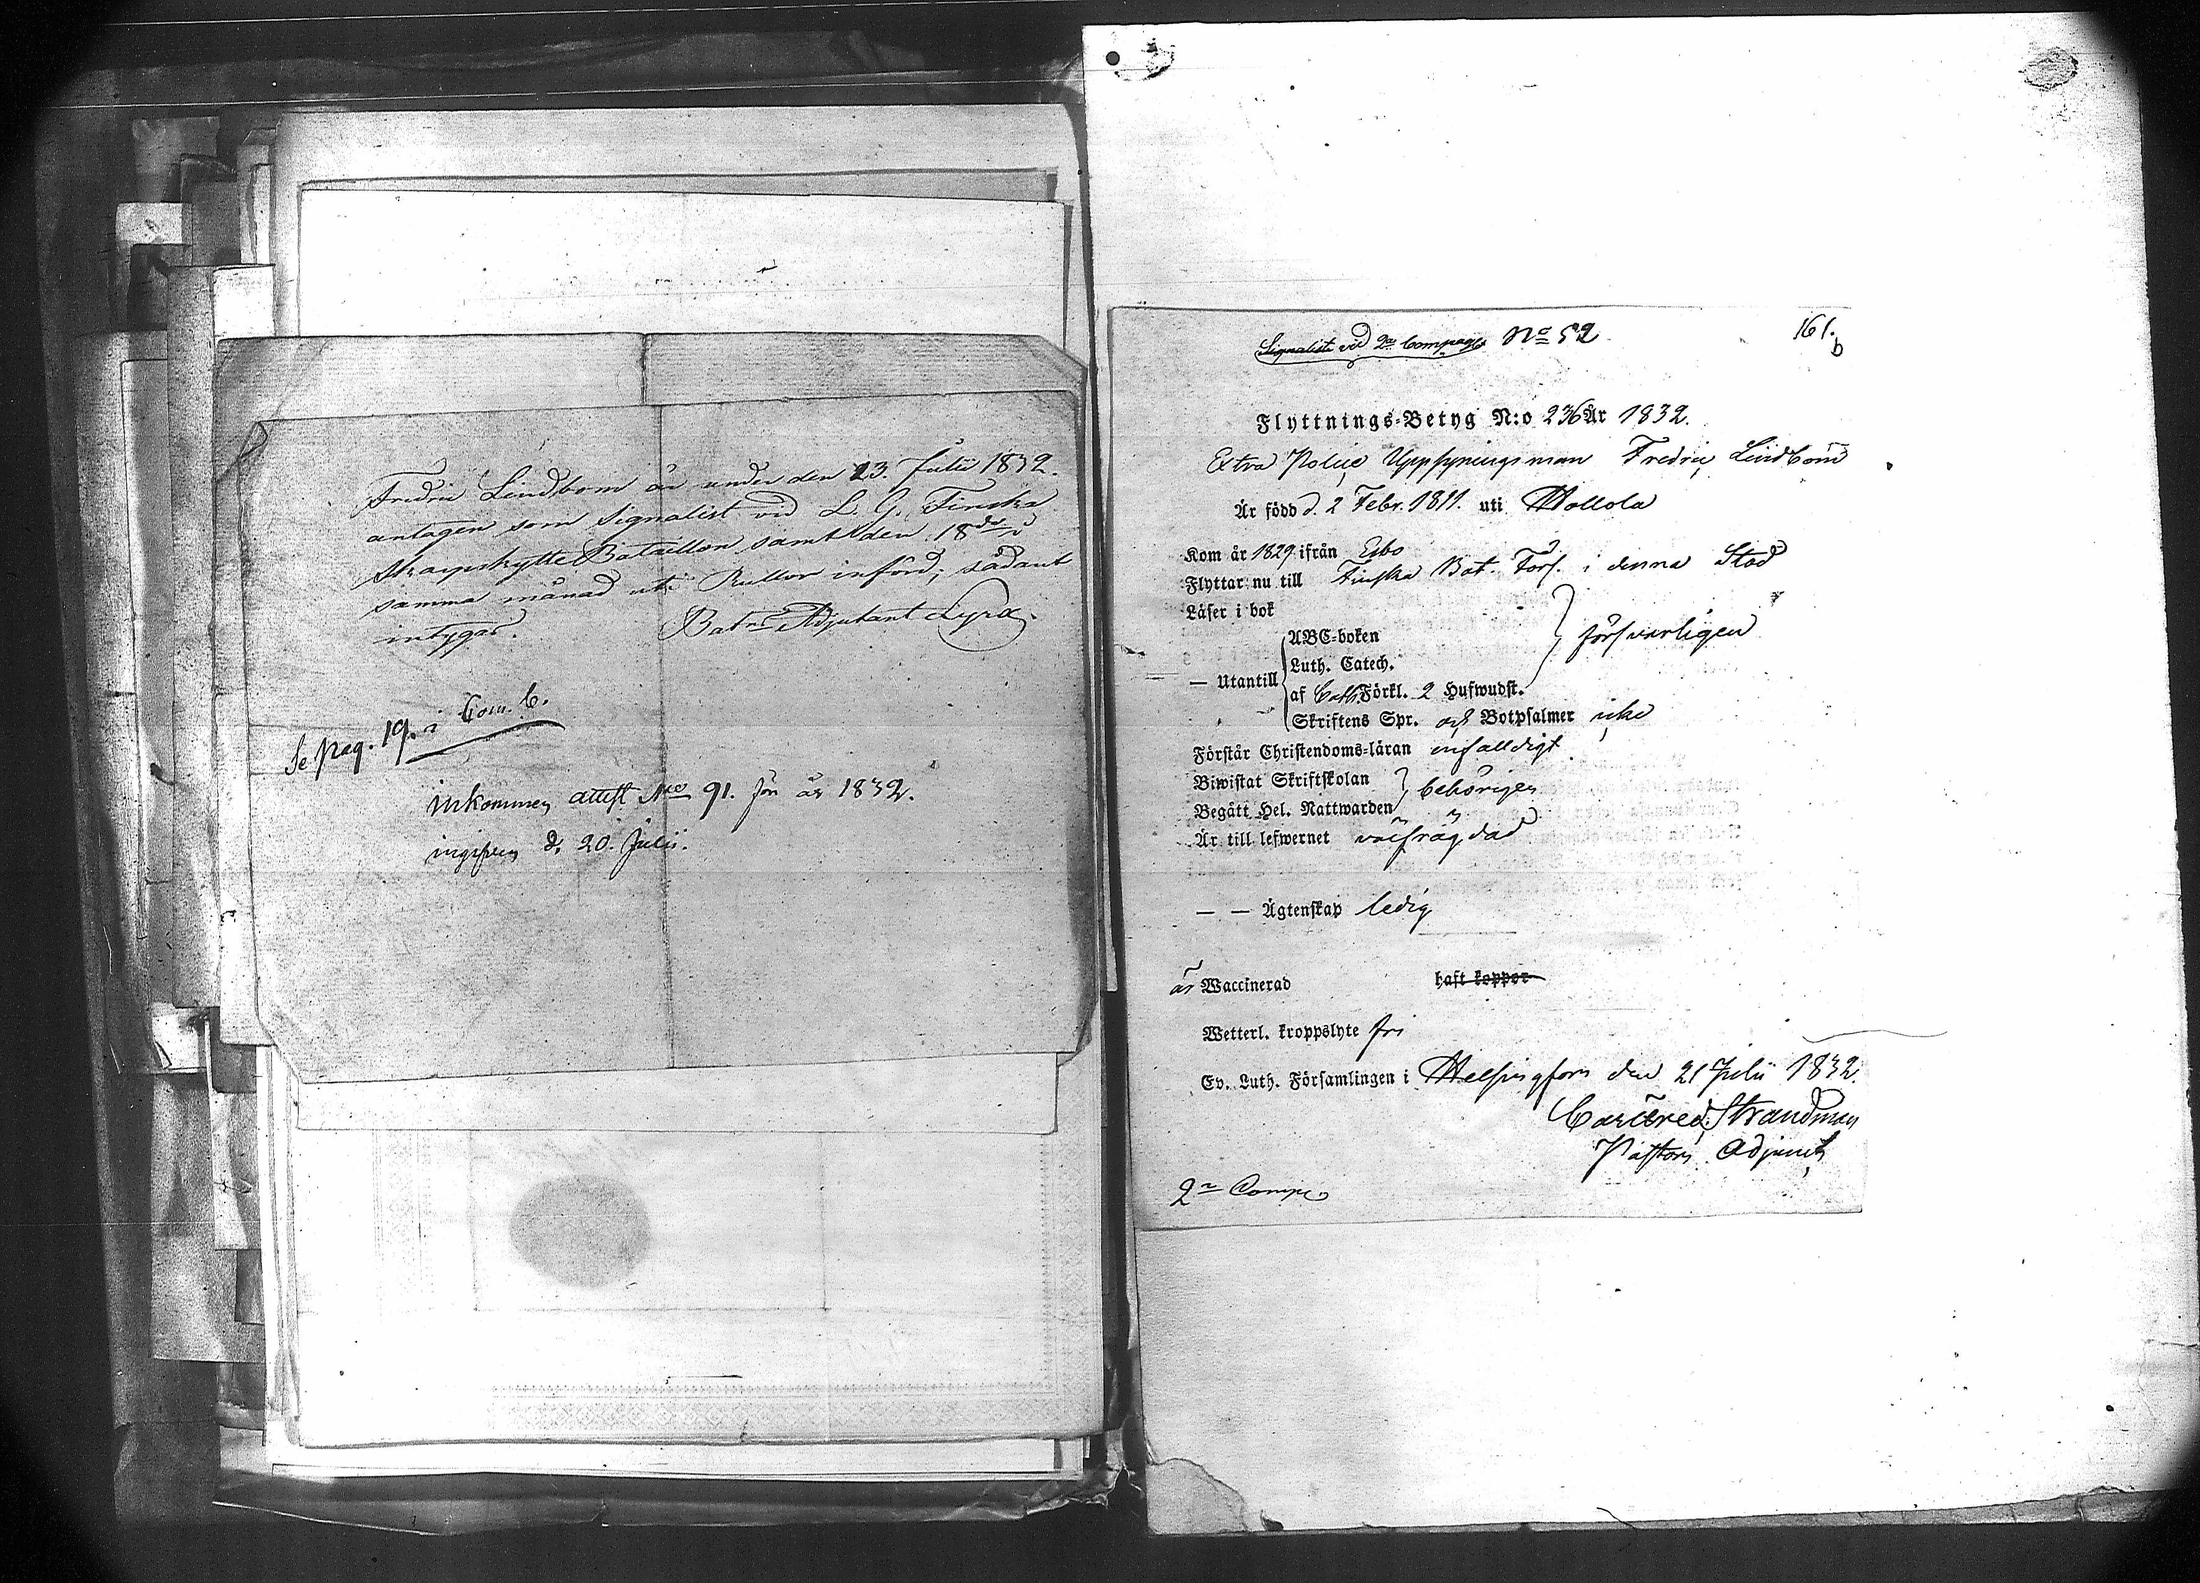 Fredric Lindbom är under den 23. Julii 1832.
antagen som Signalist vid L. G. Finska
Skarpskytte Bataillon samt den 18de i
samma månad uti Rullor införd; sådant
intygar. Batns Adjutant Lyra.
Se pag. 19. i Com. C.
inkommen attest No 91. för år 1832.
ingifven d. 20. Julii.
Signalist vid 2a Compagn No 52
161.
b
Flyttnings-Betyg N:o 236 År 1832.
Extra Police Uppsyningsman Fredric Lindbom
Är född d. 2 Febr. 1811. uti Hollola
Kom år 1829 ifrån Esbo
Flyttar nu till Finska Bat. Förs. i denna Stad
Läser i bok
ABC-boken
försvarligen
Luth. Catech.
— Utantill
af Cath. Förkl. 2 Hufwudst.
Skriftens Spr. och Botpsalmer icke
Förstår Christendoms-läran enfalldigt
Biwistat Skriftskolan
behörigen
Begått Hel. Nattwarden
Är till lefwernet välfrägdad
— — Ägtenskap ledig
är Waccinerad haft koppor
Wetterl. kroppslyte fri
Ev. Luth. Församlingen i Helsingfors den 21 Julii 1832.
Strandman
Pastors Adjunct
2a Comp.